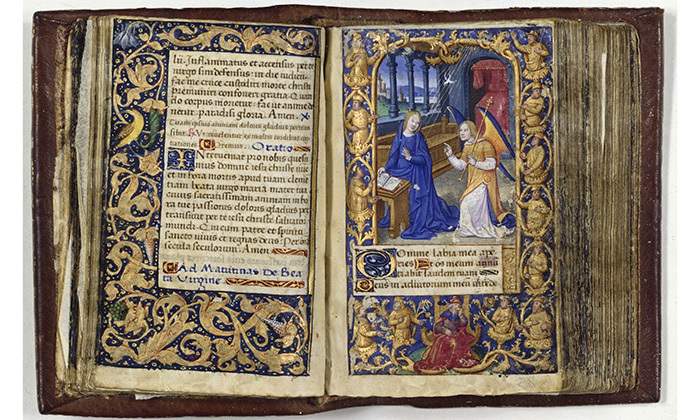 lu. Inflammatus et accensus per te
virgo sim defensus: in die iudicii
fac me cruce custodiri morte christi
premuniri confoveri gratia. Quan
do corpus morietur: fac ut anime do
netur paradisi gloria. Amen.
Tuam ipsius animam doloris gladius pertran
sibit. multis cordibus co
gitationes. Oremus. Oratio
Interveniat pro nobis quesu
mus domine iesu christe nunc
et in hora mortis apud tuam clem
tiam beata virgo maria mater tua
cuius sacratissimam animam in ho
ra tue passionis doloris gladius per
transivit per te iesu christe salvator
mundi. Qui cum patre et spiritu
sancto vivis et regnas deus. Per omnia
secula seculorum. Amen.
Ad Matutinas De Bea
ta Virgine
Domine labia mea ape
ries Et os meum annu
ciabit laudem tuam
Deus in adiutorium meum intende